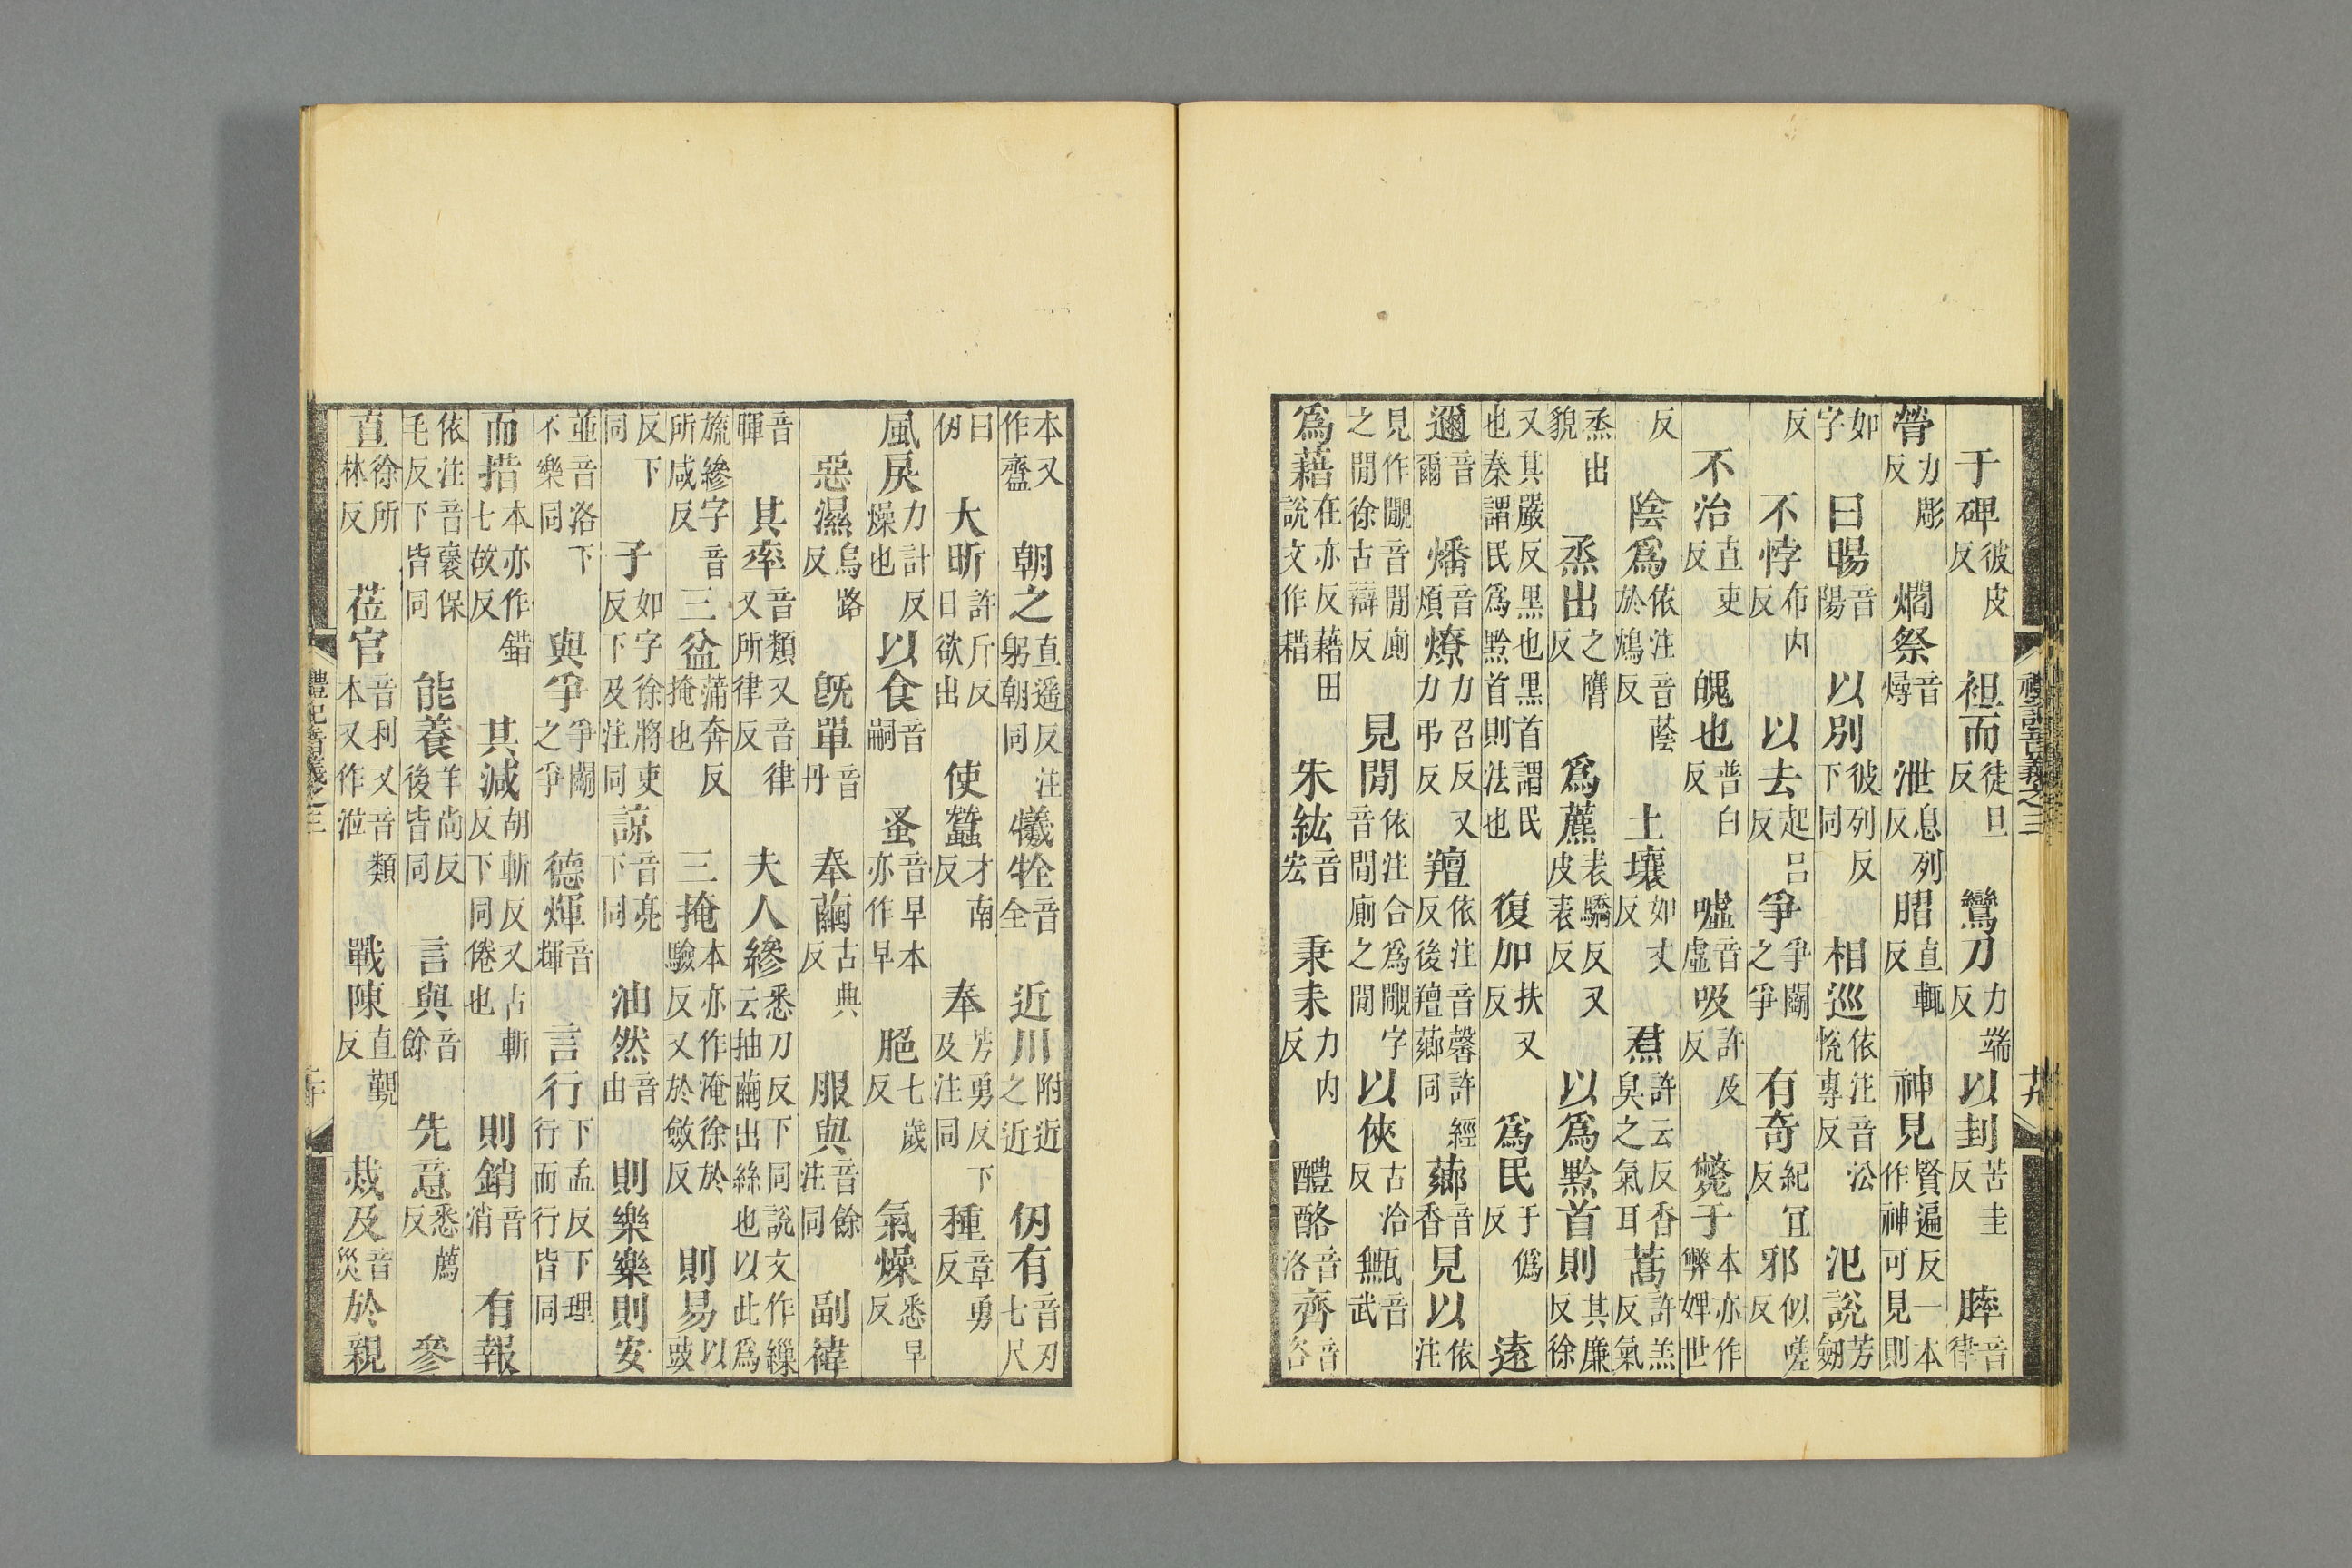 禮記音義之三 廿
于碑彼皮反 袒而徒旦反 鸞刀力端反 以刲苦圭反 膟音律
膋力彫反 爓祭音燖 泄息列反 直輒反 神見賢遍反一本作神可見則
如字 曰暘音陽 以別彼列反下同 相巡依注音㳂悅專反 氾說芳劒
反 不悖布內反 以去起呂反 爭爭鬬之爭 有奇紀宜反 邪似嗟反
不治直吏反 魄也普白反 噓音虛 吸許及反 斃于本亦作弊婢世
反 陰爲依注音蔭於鴆反 土壤如丈反 焄許云反香臭之氣耳 蒿許羔反氣
烝出貌 烝出之膺反 爲藨表驕反又皮表反 以爲黔首則其廉反徐
又其嚴反黑也黑首謂民也秦謂民爲黔首則法也 復加扶又反 爲民于僞反 遠
邇音爾 燔音煩 燎力召反又力弔反 羶依注音馨許經反後羶薌同 薌音香 見以依注
見作覸音閒廁之閒徐古辯反 見閒依注合爲覸字音閒廁之閒 以俠古洽反 甒音武
爲藉在亦反藉田說文作耤 朱紘音宏 秉耒力內反 醴酪音洛 齊音咨
本又作齍 朝之直遥反注躬朝同 犧牷音全 近川附近之近 仞有音刃七尺
曰仞 大昕許斤反日欲出 使蠶才南反 奉芳勇反下及注同 種章勇反
風戾力計反燥也 以食音嗣 蚤音早本亦作早 脃七歲反 氣燥悉早反
惡濕烏路反 旣單音丹 奉繭古典反 服與音餘注同 副褘
音暉 其率音類又音律又所律反 夫人繰悉刀反下同說文作繅云抽繭出絲也以此爲
旒繰字音所咸反 三盆蒲奔反掩也 三掩本亦作淹徐於驗反又於斂反 則易以豉
反下同 子如字徐將吏反下及注同 諒音亮下同 油然音由 則樂樂則安
並音洛下不樂同 與爭爭鬬之爭 德煇音輝 言行下孟反下理行而行皆同
而措本亦作錯七故反 其減胡斬反又古斬反下同倦也 則銷音消 有報
依注音襃保毛反下皆同 能養羊尚反後皆同 言與音餘 先意悉薦反 參
直徐所林反 莅官音利又音類本又作涖 戰陳直覲反 烖及音災 於親
禮記音義之三 廿